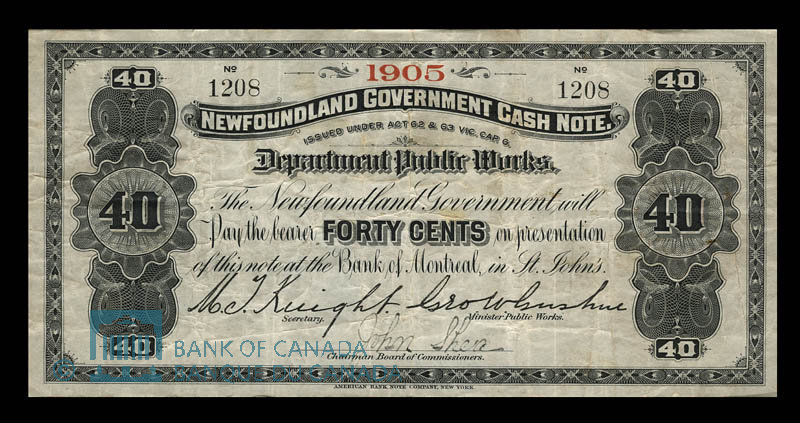 40 Nº 1905 Nº 40
1208 1208
NEWFOUNDLAND GOVERNMENT CASH NOTE.
ISSUED UNDER ACT 62 & 63 VIC. CAP 6.
Department Public Works.
The Newfoundland Government, will
40 Pay the bearer FORTY CENTS on presentation 40
of this note at the Bank of Montreal, in St. John's.
Secretary. Minister Public Works.
John Shea
40 40
Chairman Board of Commissioners.
AMERICAN BANK NOTE COMPANY, NEW YORK.
© BANK OF CANADA
BANQUE DU CANADA